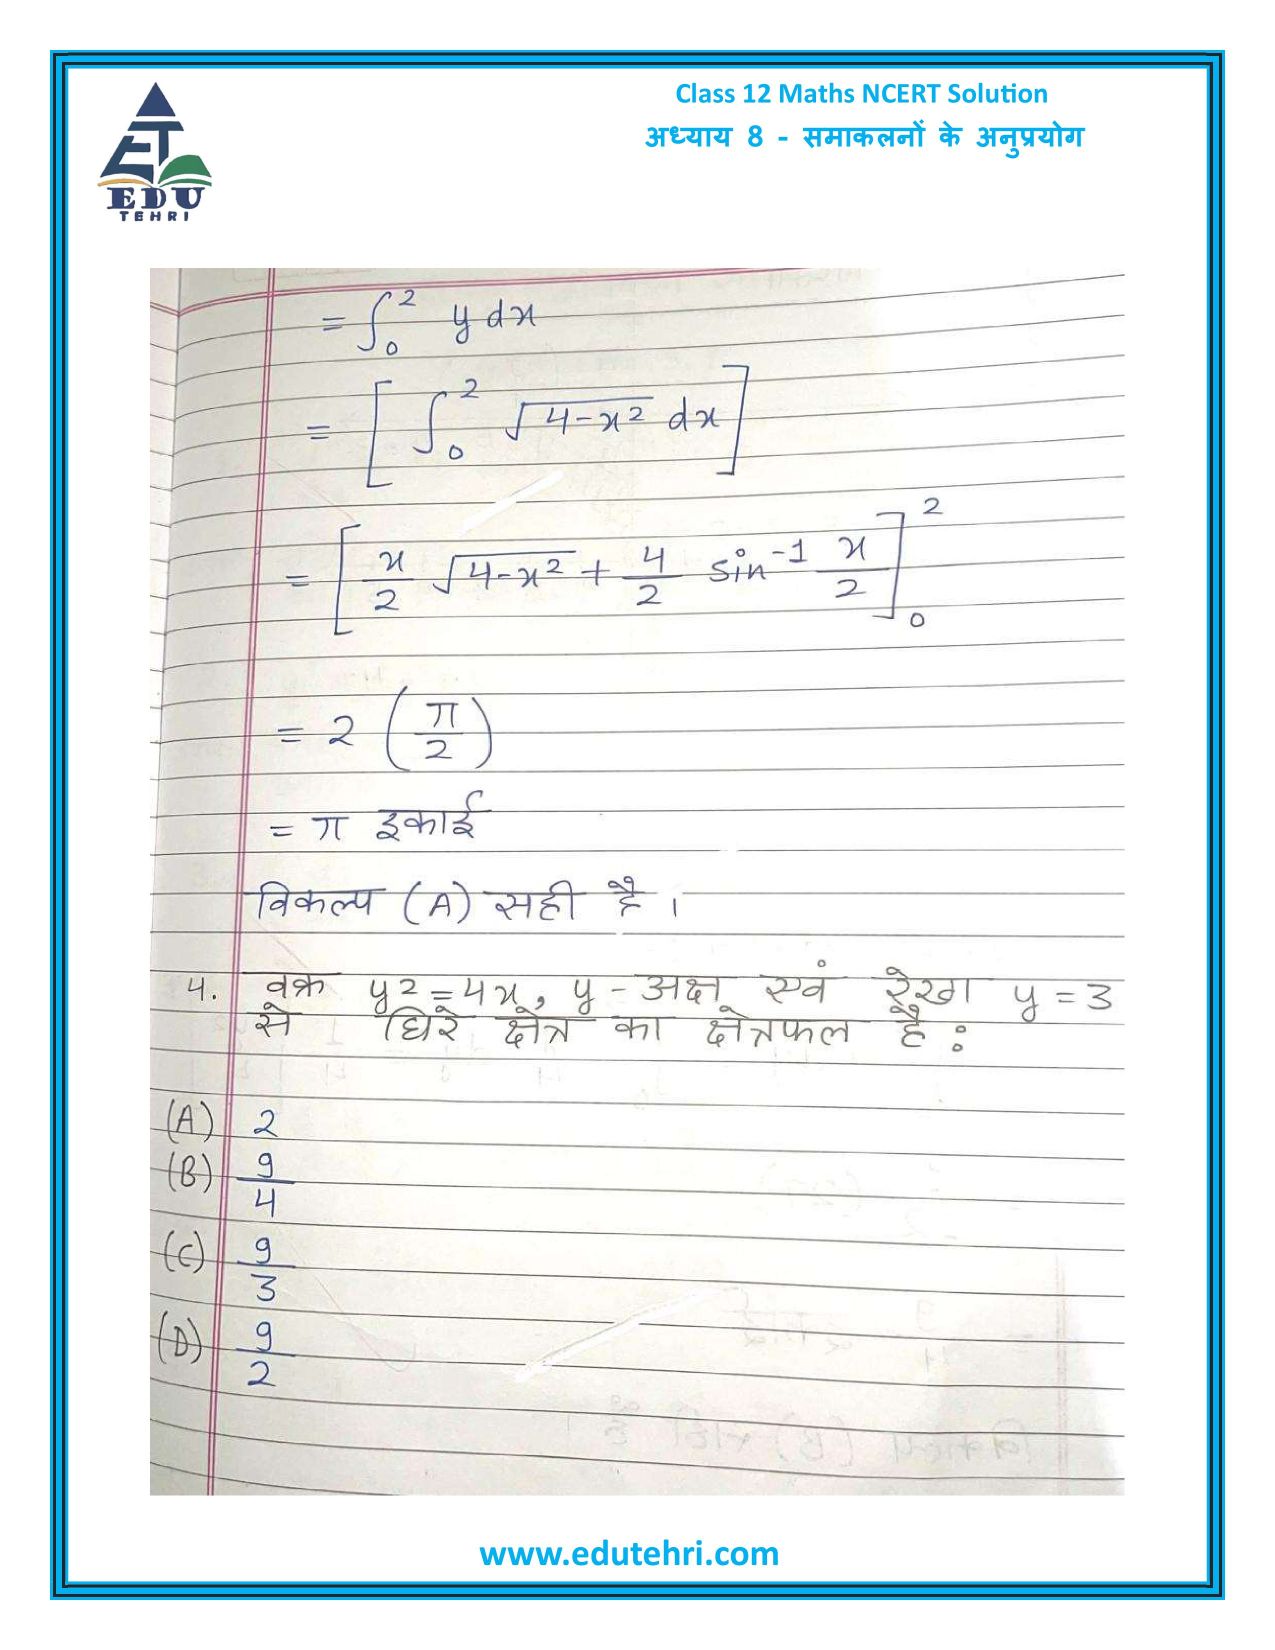 Class 12 Maths NCERT Solution
अध्याय 8 - समाकलनों के अनुप्रयोग
ET
EDU
TEHRI
= ∫₀² y dx
= [ ∫₀² √(4-x²) dx ]
= [ x/2 √(4-x²) + 4/2 sin⁻¹ x/2 ]₀²
= 2 (π/2)
= π इकाई
विकल्प (A) सही है ।
4. वक्र y² = 4x, y - अक्ष एवं रेखा y = 3
से घिरे क्षेत्र का क्षेत्रफल है :
(A) 2
(B) 9/4
(C) 9/3
(D) 9/2
www.edutehri.com